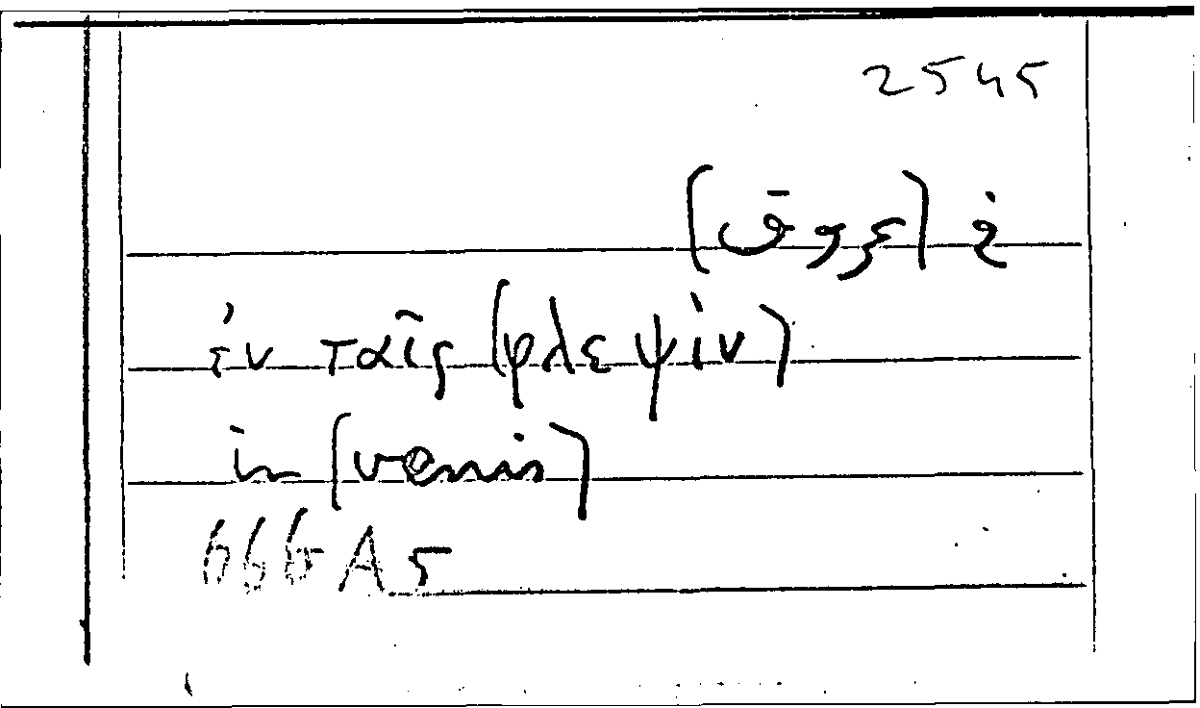 2545
في (عروق)
ἐν ταῖς (φλεψίν)
in (venis)
666 A 5